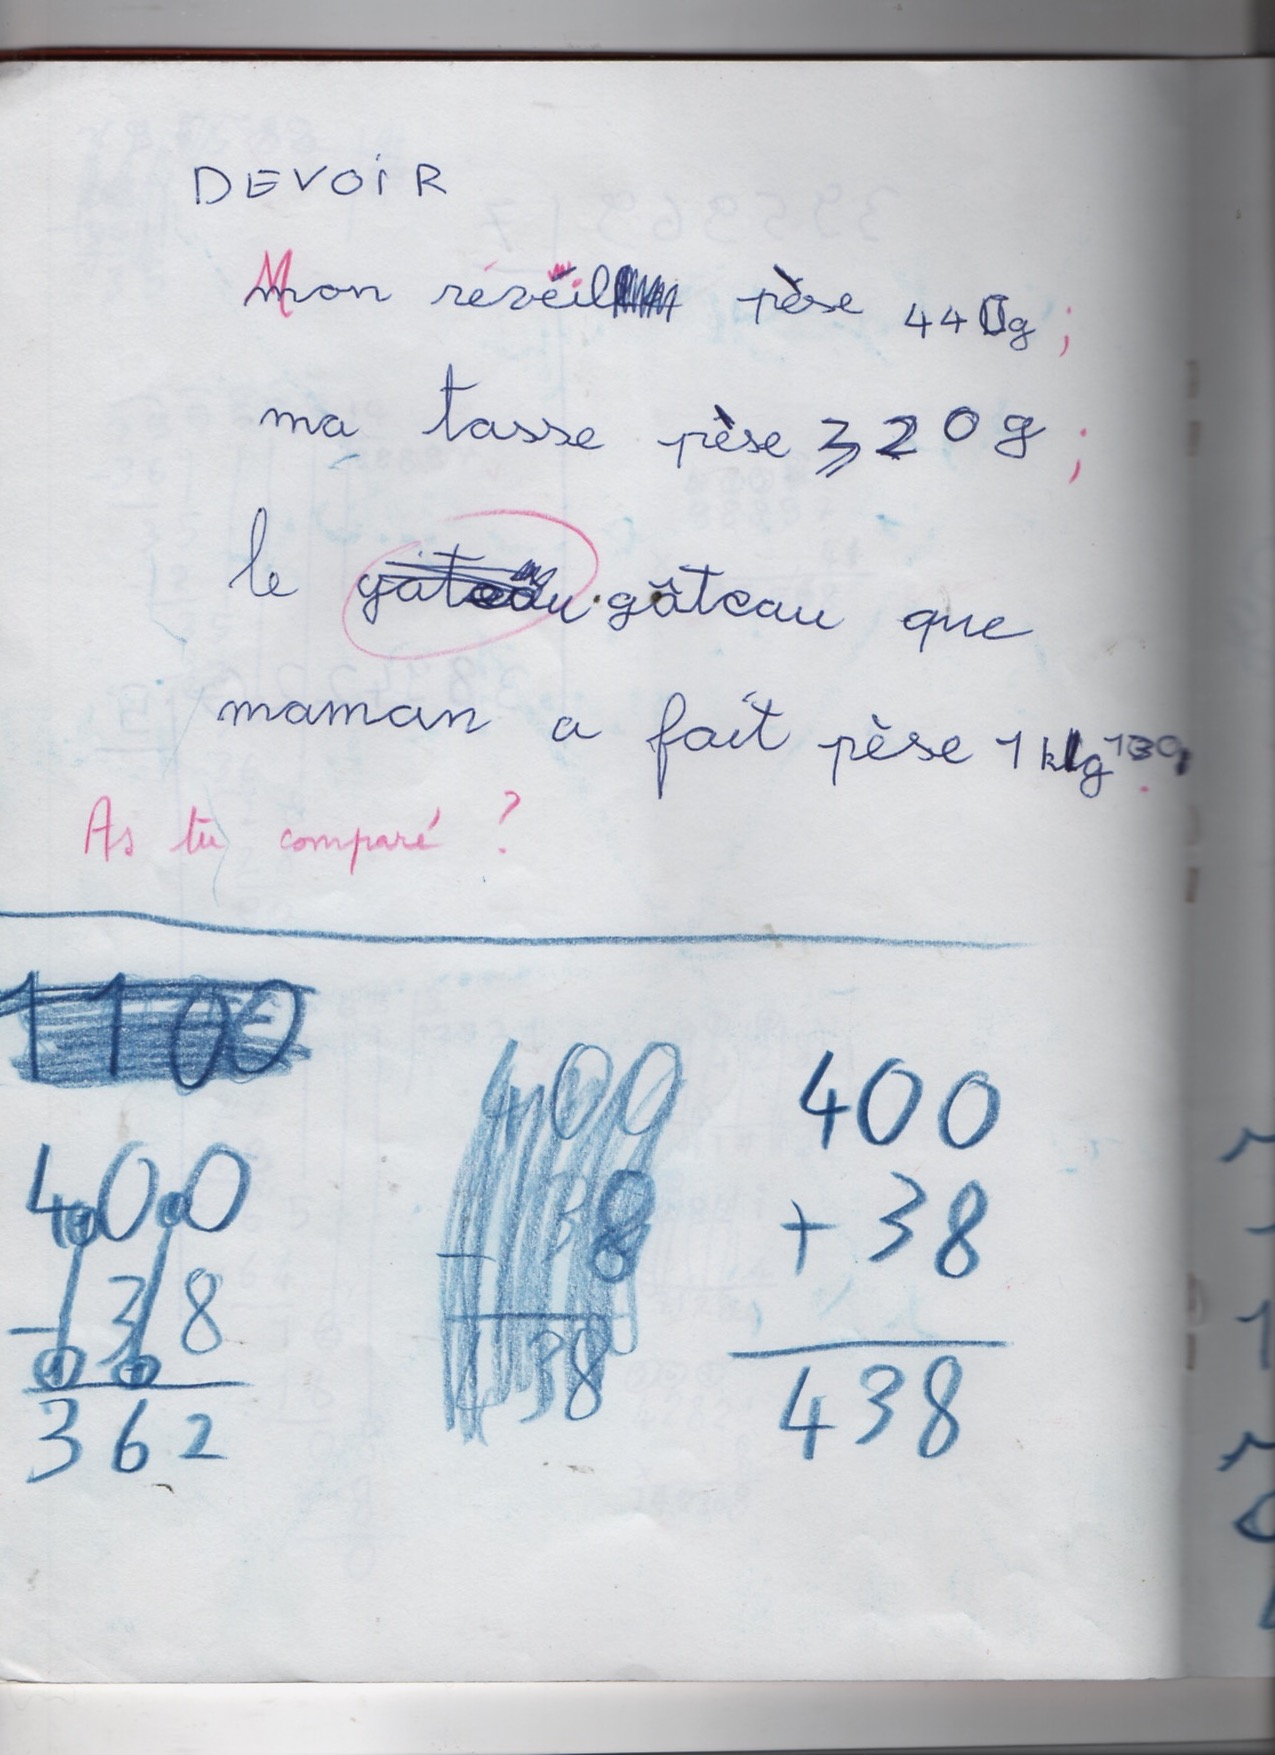 DEVOIR
Mon réveil pèse 440g ;
ma tasse pèse 320g ;
le gâteau que
maman a fait pèse 1 kg 130g.
As tu comparé ?
1100
400
- 38
362
400
- 38
438
400
+ 38
438